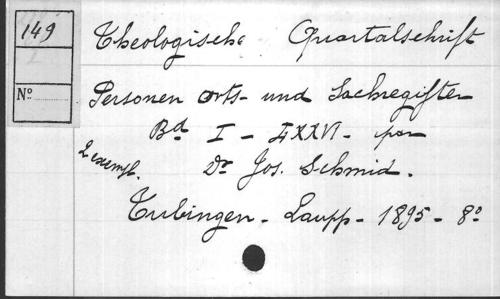 149
Theologische Quartalschrift
Nº
Personen Orts- und Sachregister
Bd I - LXXVI - par
2 exempl.
Dr Jos. Schmid.
Tubingen - Laupp - 1895 - 8º